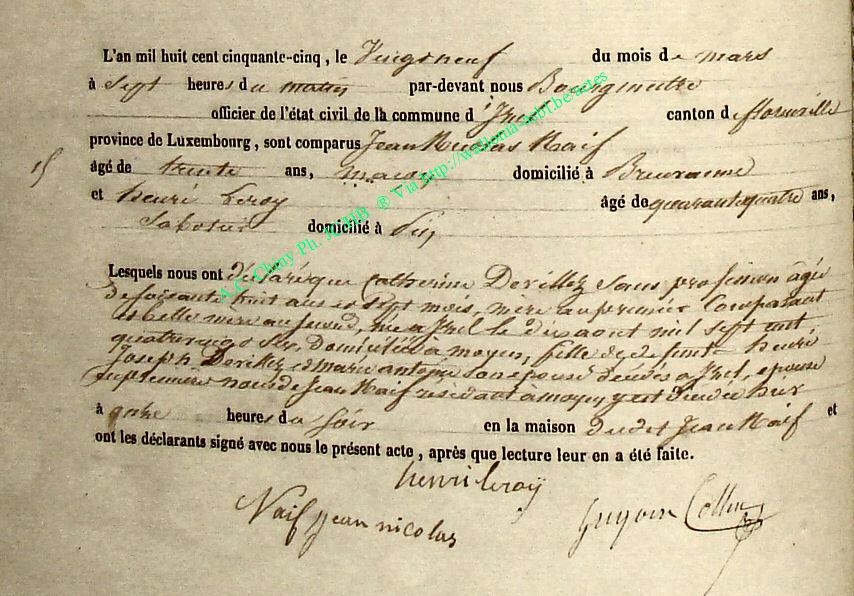 L'an mil huit cent cinquante-cinq, le Vingt neuf du mois de mars
à sept heures du matin par-devant nous Bourgmestre
officier de l'état civil de la commune d'Izel canton de florenville
province de Luxembourg, sont comparus Jean Nicolas Naif
15
âgé de trente ans, maçon domicilié à
et henri Leroy âgé de quarante quatre ans,
Sabotier domicilié à
Lesquels nous ont déclaré que Catherine Devillez sans profession âgée
de soixante huit ans et sept mois, mère au premier Comparant
et belle mère au second, née a Izel le dix aout mil sept cent
quatrevingt six, domiciliée à moyen, fille de defunts henri
Joseph Devillez et marie son epouse décédés a Izel, epouse
en premiere noce de Jean Naif résidant a moyen y est décédée hier
à heures du soir en la maison dudit Jean Naif et
ont les déclarants signé avec nous le présent acte, après que lecture leur en a été faite.
henri leroy
Naif jean nicolas
Guyoin Collin
A.C. Chiny Ph. JCMB ® Via http://wallonia-asbl.be/actes